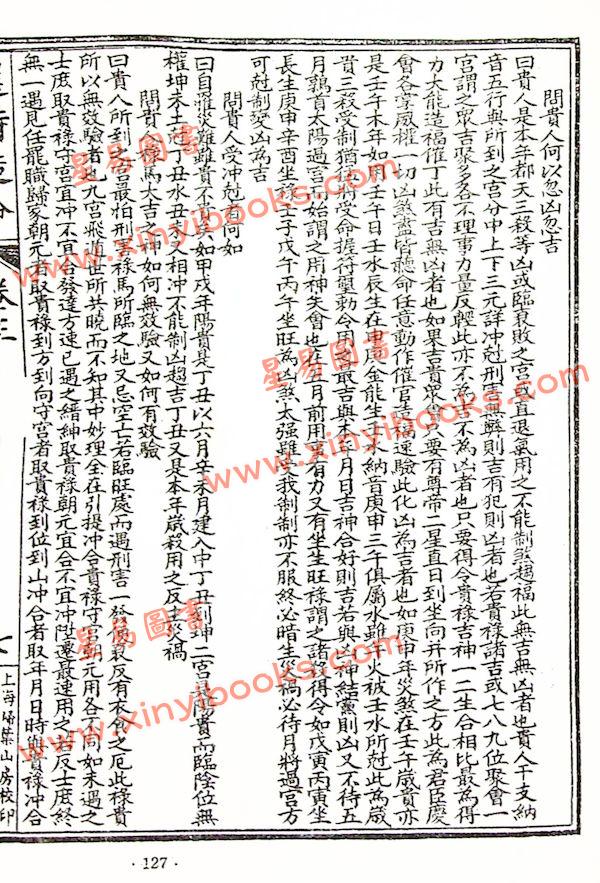 問貴人何以忽凶忽吉
曰貴人是本年都天三殺等凶或臨衰敗之宮或直退氣用之不能制煞趨福此無吉無凶者也貴人干支納
音五行與所到之宮分中上下三元詳冲尅刑害無弊則吉有犯則凶者也若貴祿諸吉或七八九位聚會一
宮謂之眾吉聚多各不理事力量反輕此亦不為吉不為凶者也只要得令貴祿吉神一二生合相比最為得
力大能造福催丁此有吉無凶者也如果吉貴眾多只要有尊帝二星直日到坐向并所作之方此為君臣慶
會各掌威權一切凶煞盡皆聽命任意動作催官造福速驗此化凶為吉者也如庚申年炎煞在壬午歲貴亦
是壬午本年如用壬午日壬水辰生在申庚金能生壬水納音庚申三午俱屬水雖午火被壬水所尅此為歲
貴三殺受制猶使將受命握符璽動令用之最吉與本年月日吉神合好則吉若與凶神結黨則凶又不待五
月鶉首太陽過宮而始謂之用神失會也在五月前用事有力又有坐生旺祿謂之諸將得令如戊寅丙寅坐
長生庚申辛酉坐祿壬子戊午丙午坐旺為凶煞太強雖受我制制亦不服終必暗生災禍必待月將過宮方
可尅制變凶為吉
問貴人受冲尅者何如
曰自罹災難雖貴不貴如甲戌年陽貴是丁丑以六月辛未月建入中丁丑到坤二宮是陽貴而臨陰位無
權坤未土尅丁丑水丑未又相冲不能制凶趨吉丁丑又是本年歲殺用之反主災禍
問貴人祿馬大吉之神如何無效驗又如何有效驗
曰貴人所到之宮最怕刑害祿馬所臨之地又忌空亡若臨旺處而遇刑害一發便衰反有衣食之厄此祿貴
所以無效驗者也九宮飛遁世所共曉而不知其中妙理全在引提冲合貴祿守宮朝元用各不同如未遇之
士庶取貴祿守宮宜冲不宜合發達方速已遇之縉紳取貴祿朝元宜合不宜冲陞遷最速用之若反士庶終
無一遇見任龍職歸家朝元者取貴祿到方到向守宮者取貴祿到位到山冲合者取年月日時與貴祿冲合
卷三
上海埽葉山房校印
星易圖書
www.xinyibooks.com
星易圖書
www.xinyibooks.com
星易圖書
www.xinyibooks.com
·127·